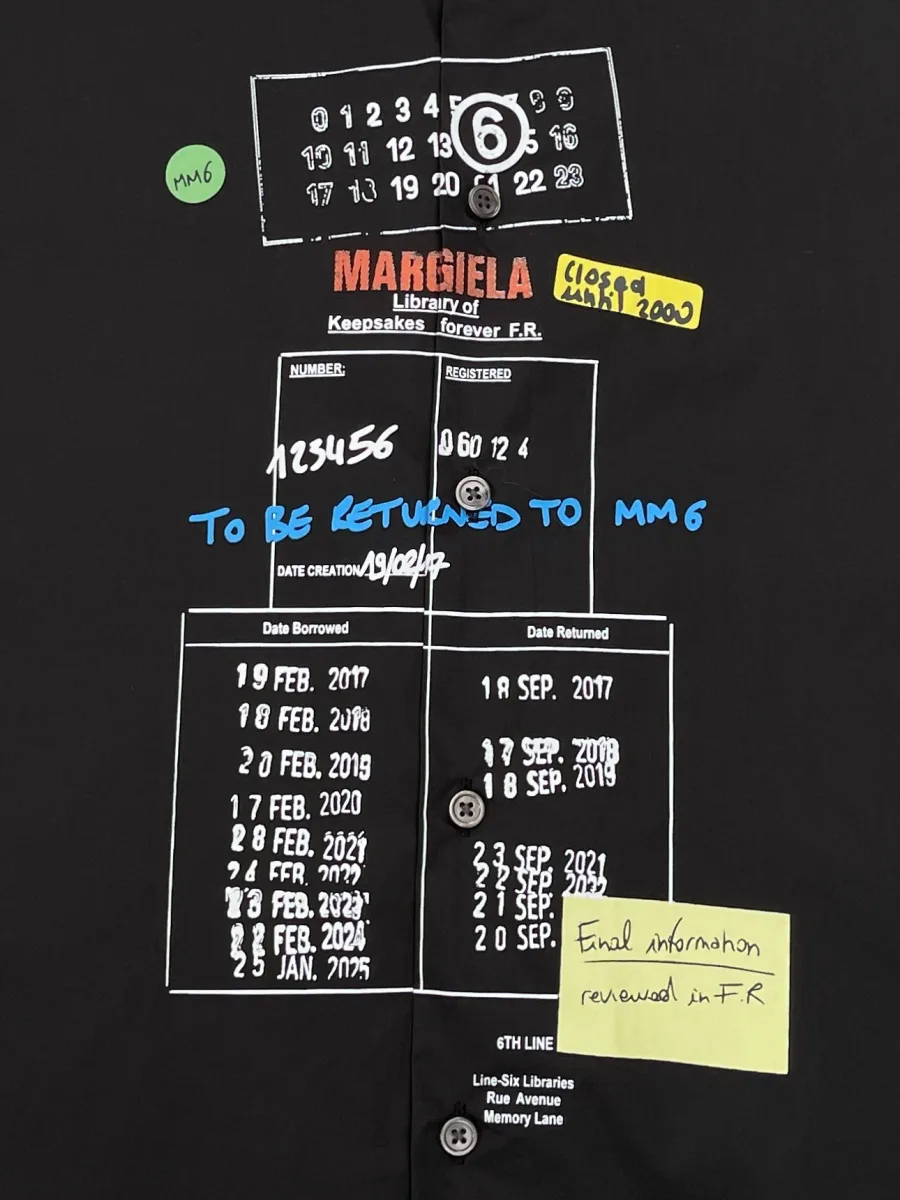 0 1 2 3 4 5 6 8 9
10 11 12 13 16
17 18 19 20 21 22 23
MM6
MARGIELA
Closed
until 2000
Library of
Keepsakes forever F.R.
NUMBER:
REGISTERED
123456
060 12 4
TO BE RETURNED TO MM6
DATE CREATION 19/02/17
Date Borrowed
Date Returned
19 FEB. 2017
18 SEP. 2017
18 FEB. 2018
17 SEP. 2018
20 FEB. 2019
18 SEP. 2019
17 FEB. 2020
28 FEB. 2021
23 SEP. 2021
24 FEB. 2022
22 SEP. 2022
23 FEB. 2023
21 SEP.
22 FEB. 2024
20 SEP.
25 JAN. 2025
Final information
reviewed in F.R
6TH LINE
Line-Six Libraries
Rue Avenue
Memory Lane